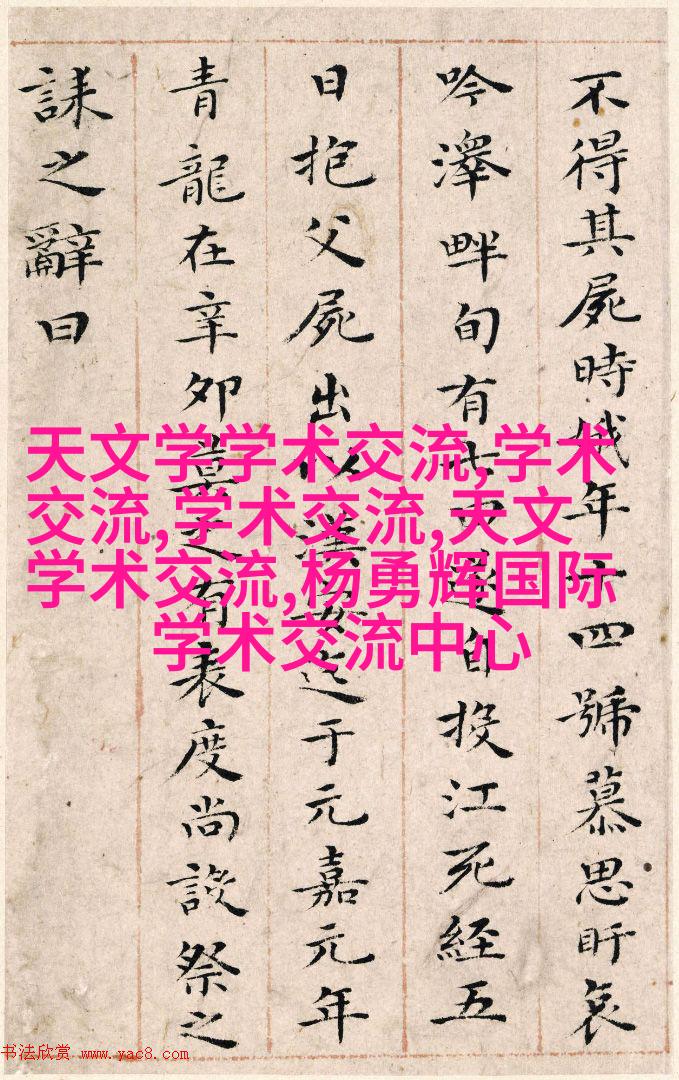 不得其屍時娥年十四號慕思盱哀
吟澤畔旬有七日遂自投江死經五
日抱父屍出以漢安迄于元嘉元年
青龍在辛卯莫之有表度尚設祭之
誄之辭曰
天文学学术交流,学术
交流,学术交流,天文
学术交流,杨勇辉国际
学术交流中心
书法欣赏 www.yac8.com